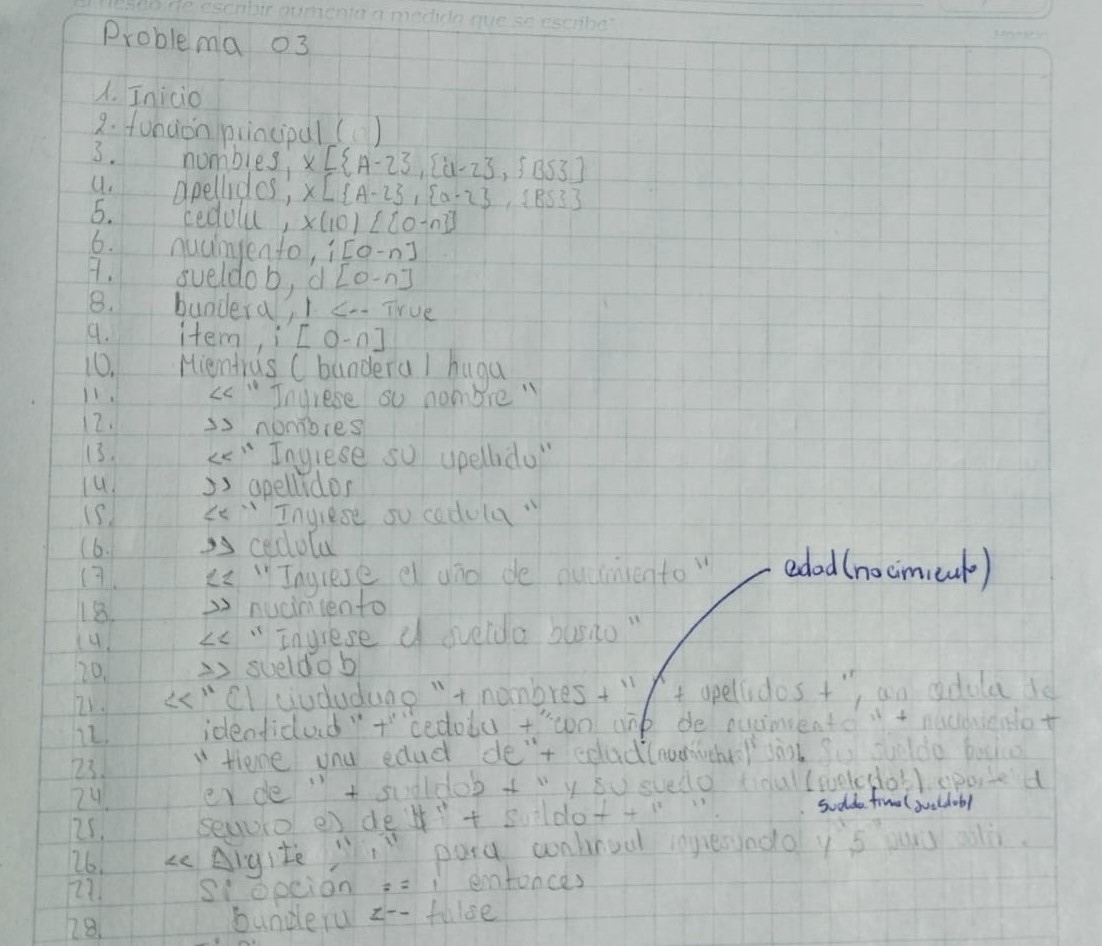 deseo de escribir aumenta a medida que se escribe"
Problema 03
1. Inicio
2. función principal ( )
3. nombres, x [{A-z}, {a-z}, {BS}]
4. apellidos, x [{A-z}, {a-z}, {BS}]
5. cedula, x(10) [[0-n]]
6. nacimiento, i [0-n]
7. sueldo b, d [0-n]
8. bandera, l <-- True
9. item, i [0-n]
10. Mientras ( bandera ) haga
11. << "Ingrese su nombre"
12. >> nombres
13. << "Ingrese su apellido"
14. >> apellidos
15. << "Ingrese su cedula"
16. >> cedula
17. << "Ingrese el año de nacimiento" edad(nacimiento)
18. >> nacimiento
19. << "Ingrese el sueldo basico"
20. >> sueldo b
21. << "El ciudadano "+ nombres + " " + apellidos + ", con cedula de
22. identidad" + "cedula + "con año de nacimiento" + nacimiento +
23. "tiene una edad de "+ edad(nacimiento)" años. Su sueldo basico
24. es de " + sueldob + " y su suedo final (sueldob) aporte al
sueldo final (sueldob)
25. seguro es de $" + sueldo + " ".
26. << Digite "i" para continuar ingresando y "s" para salir.
27. Si opción == i entonces
28. bandera <-- false